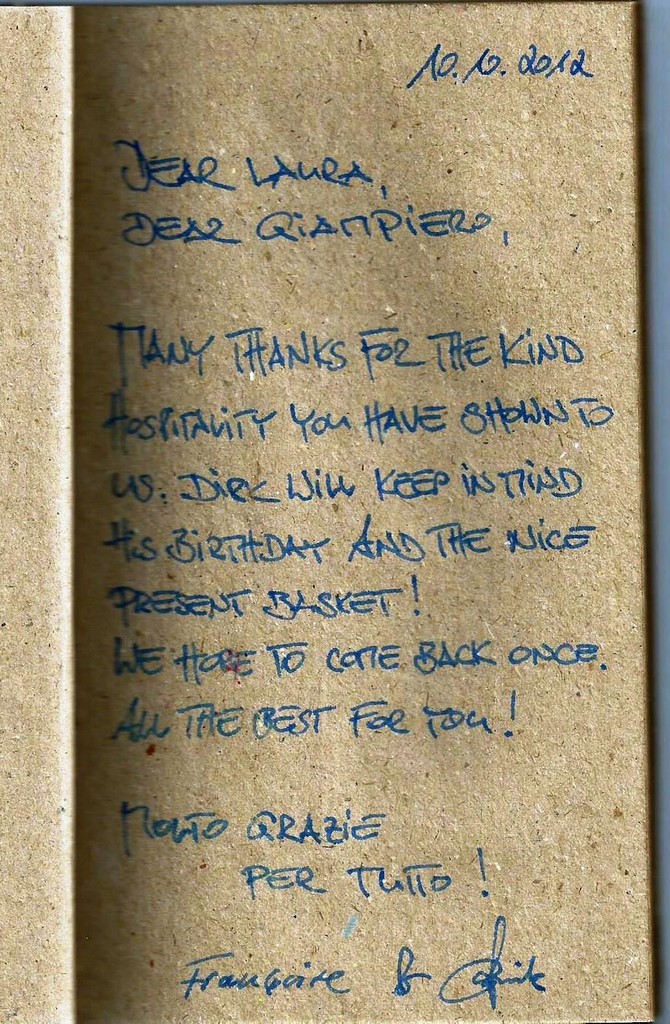 10.10.2012
DEAR LAURA,
DEAR GIAMPIERO,
MANY THANKS FOR THE KIND
HOSPITALITY YOU HAVE SHOWN TO
US. DIRK WILL KEEP IN MIND
HIS BIRTHDAY AND THE NICE
PRESENT BASKET!
WE HOPE TO COME BACK ONCE.
ALL THE BEST FOR YOU!
MOLTO GRAZIE
PER TUTTO!
Françoise &